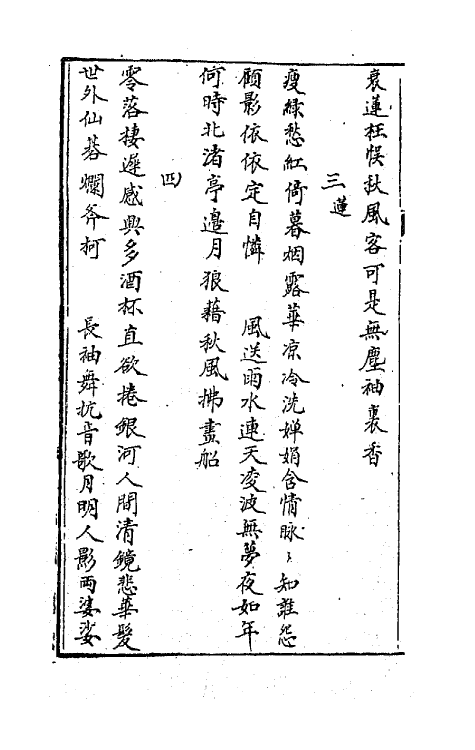 衰蓮枉悮秋風客可是無塵袖裏香
三 蓮
瘦綠愁紅倚暮烟露華凉冷洗嬋娟含情脉〻知誰怨
顧影依依定自憐 風送雨水連天凌波無夢夜如年
何時北渚亭邊月狼藉秋風拂畫船
四
零落棲遲感興多酒杯直欲捲銀河人間清鏡悲華髮
世外仙棊爛斧柯 長袖舞抗音歌月明人影兩婆娑